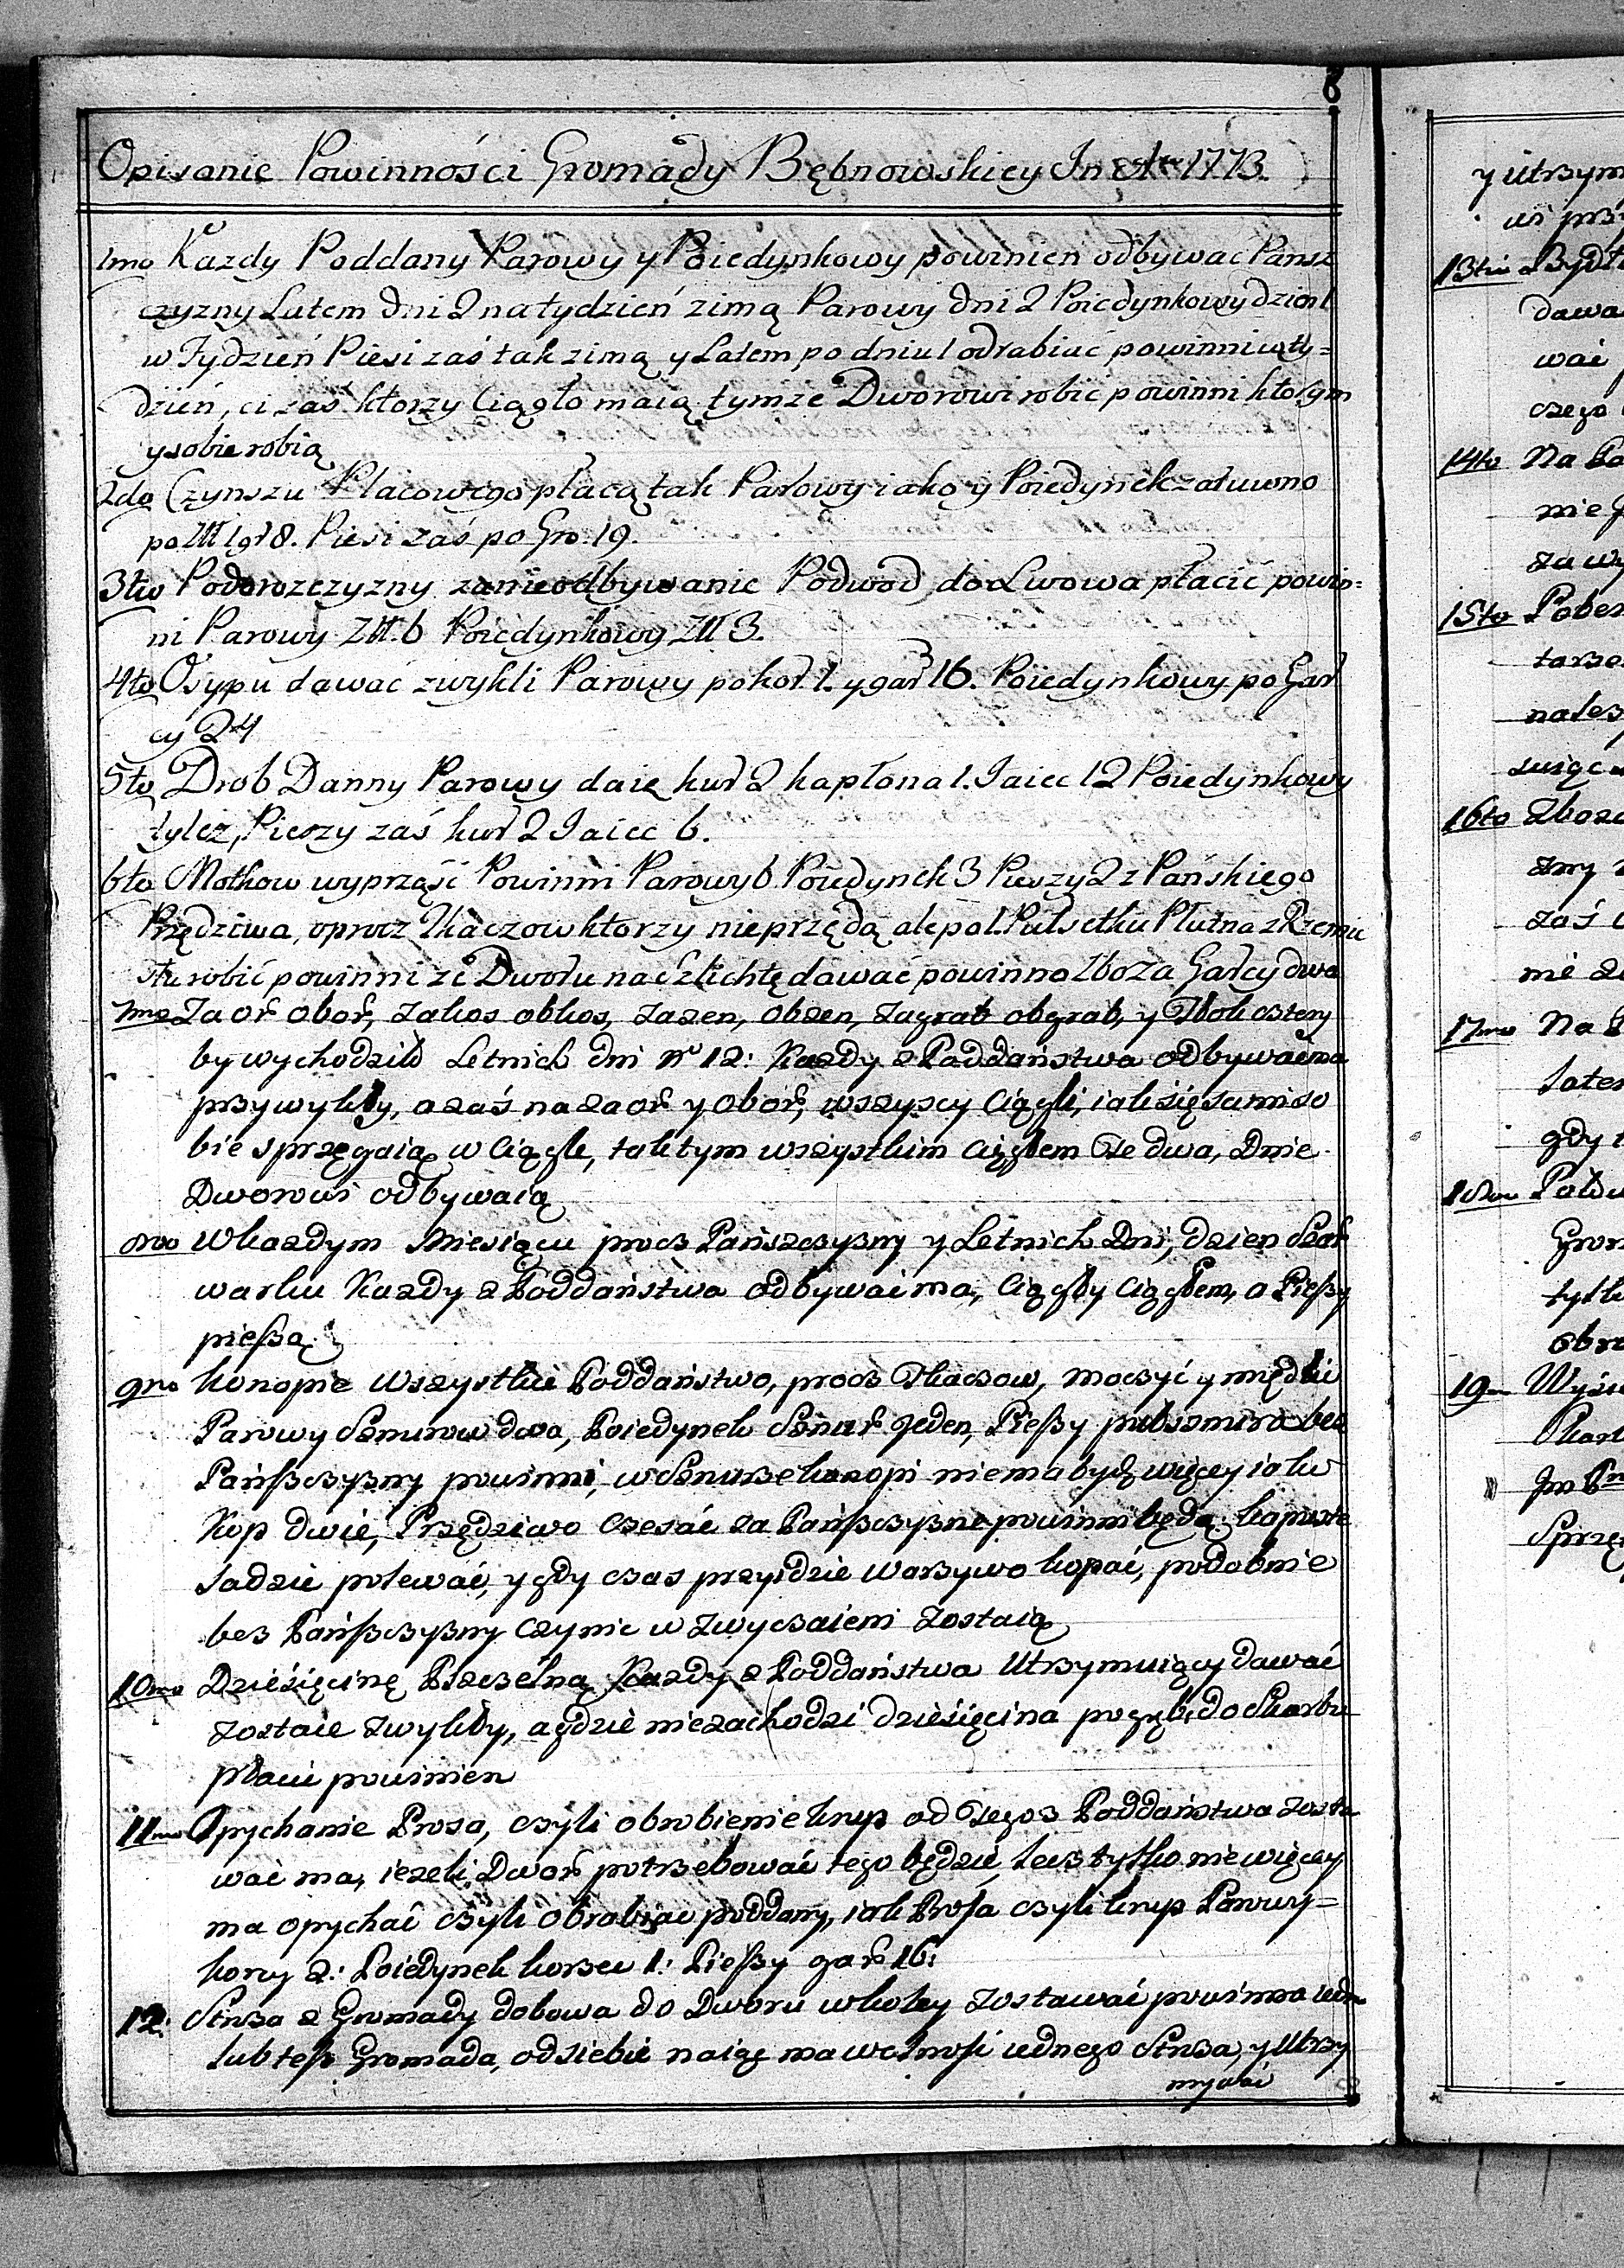 8
Opisanie Powinności Gromady Bębnowskiey In Ao 1773.
1mo Kazdy Poddany Parowy y Poiedynkowy powinien odbywac Pansz
czyzny Latem dni 2 na tydzień zimą Parowy dni 2 Poiedynkowy dzień 1
w Tydzień Piesi zaś tak zimą y Latem, po dniu 1 odrabiać powinni w ty=
dzień, ci zaś ktorzy Ciągło maią tymze Dworowi robić powinni ktorym
y sobie robią
2do Czynszu Placowego płacą tak Parowy iako y Poiedynek zarowno
po Zł 1 gr 8. Piesi zaś po Gro. 19.
3tio Podorozczyzny za nieodbywanie Podwod do Lwowa płacić powin=
ni Parowy Zł. 6 Poiedynkowy Zł 3.
4to Osypu dawać zwykli Parowy po kor. 1. y gar 16. Poiedynkowy po Gar
cy 24
5to Drob Danny Parowy daię kur 2 kapłona 1. Iaiec 12 Poiedynkowy
tylez, Pieszy zaś kur 2 Iaiec 6.
6to Motkow wyprząść Powinni Parowy 6 Poiedynek 3 Pieszy 2 z Pańskiego
Przędziwa, oprocz Tkaczow ktorzy nie przędą ale po 1. Pułsetku Płutna z Rzemie
sła robić powinni ze Dworu na Szlichtę dawać powinno Zboza Garcy dwa
7mo Zaor obor, zakos obkos, zazen, obzen, zagrab obgrab, y Tłok cztery
by wychodziło Letnich dni No 12: Kazdy z Poddaństwa odbywać ma
przywykły, a zaś na zaor y obor, wszyscy Ciągli, iak się sami so
bie sprzęgaią w Ciągle, tak tym wszystkim ciągłem Te dwa, Dnie
Dworowi odbywaią
8vo W kazdym Miesiącu procz Pańszczyzny y Letnich Dni, dzien Szar
warku Kazdy z Poddaństwa odbywać ma, Ciągły ciągłem, a Pießy
pießą
9no Konopie wszystkie Poddaństwo, procz Tkaczow, moczyć y międlić
Parowy Sznurow dwa, Poiedynek Sznur Jeden, Pießy puł sznura bez
Pańßczyzny powinni, w Sznurze konopi niema bydź więcey iak
Kop dwie, Przędziwo czesać za Pańßczyznę powinni będą, kapustę
sadzić polewać, y gdy czas przyidzie warzywo kopać, podobnie
bez Pańßczyzny czynić w zwyczaieni zostaią
10mo Dzieśięcinę Pszczelną Kazdy z Poddaństwa Utrzymuiący dawać
zostaie zwykły, a gdzie niezachodzi dzieśięcina po gr 6, do Skarbu
płacić powinien
11mo Opychanie Prosa, czyli obrobienie krup od Tegoz Poddaństwa zosta
wać ma, iezeli Dwor potrzebować tego będzie, lecz tylko nie więcey
ma opychać czyli obrabiać poddany, iak Prosa czyli krup Parowy=
korcy 2: Poiedynek korzec 1: Pießy gar 16:
12: Stroza z Gromady dobowa do Dworu w koley zostawać powinna iedna
lub teß Gromada, od siebie naiąć ma wolność iednego Stroza, y Utrzy
mywać
y utrzym
13tio Bydł
dawa
wać
czego
14to Na Po
nie
za wy
15to Pober
tarze
nalez
16to Zboza
zaś
nie
17mo Na
late
gdy
Grom
tylk
obro
Sprzę